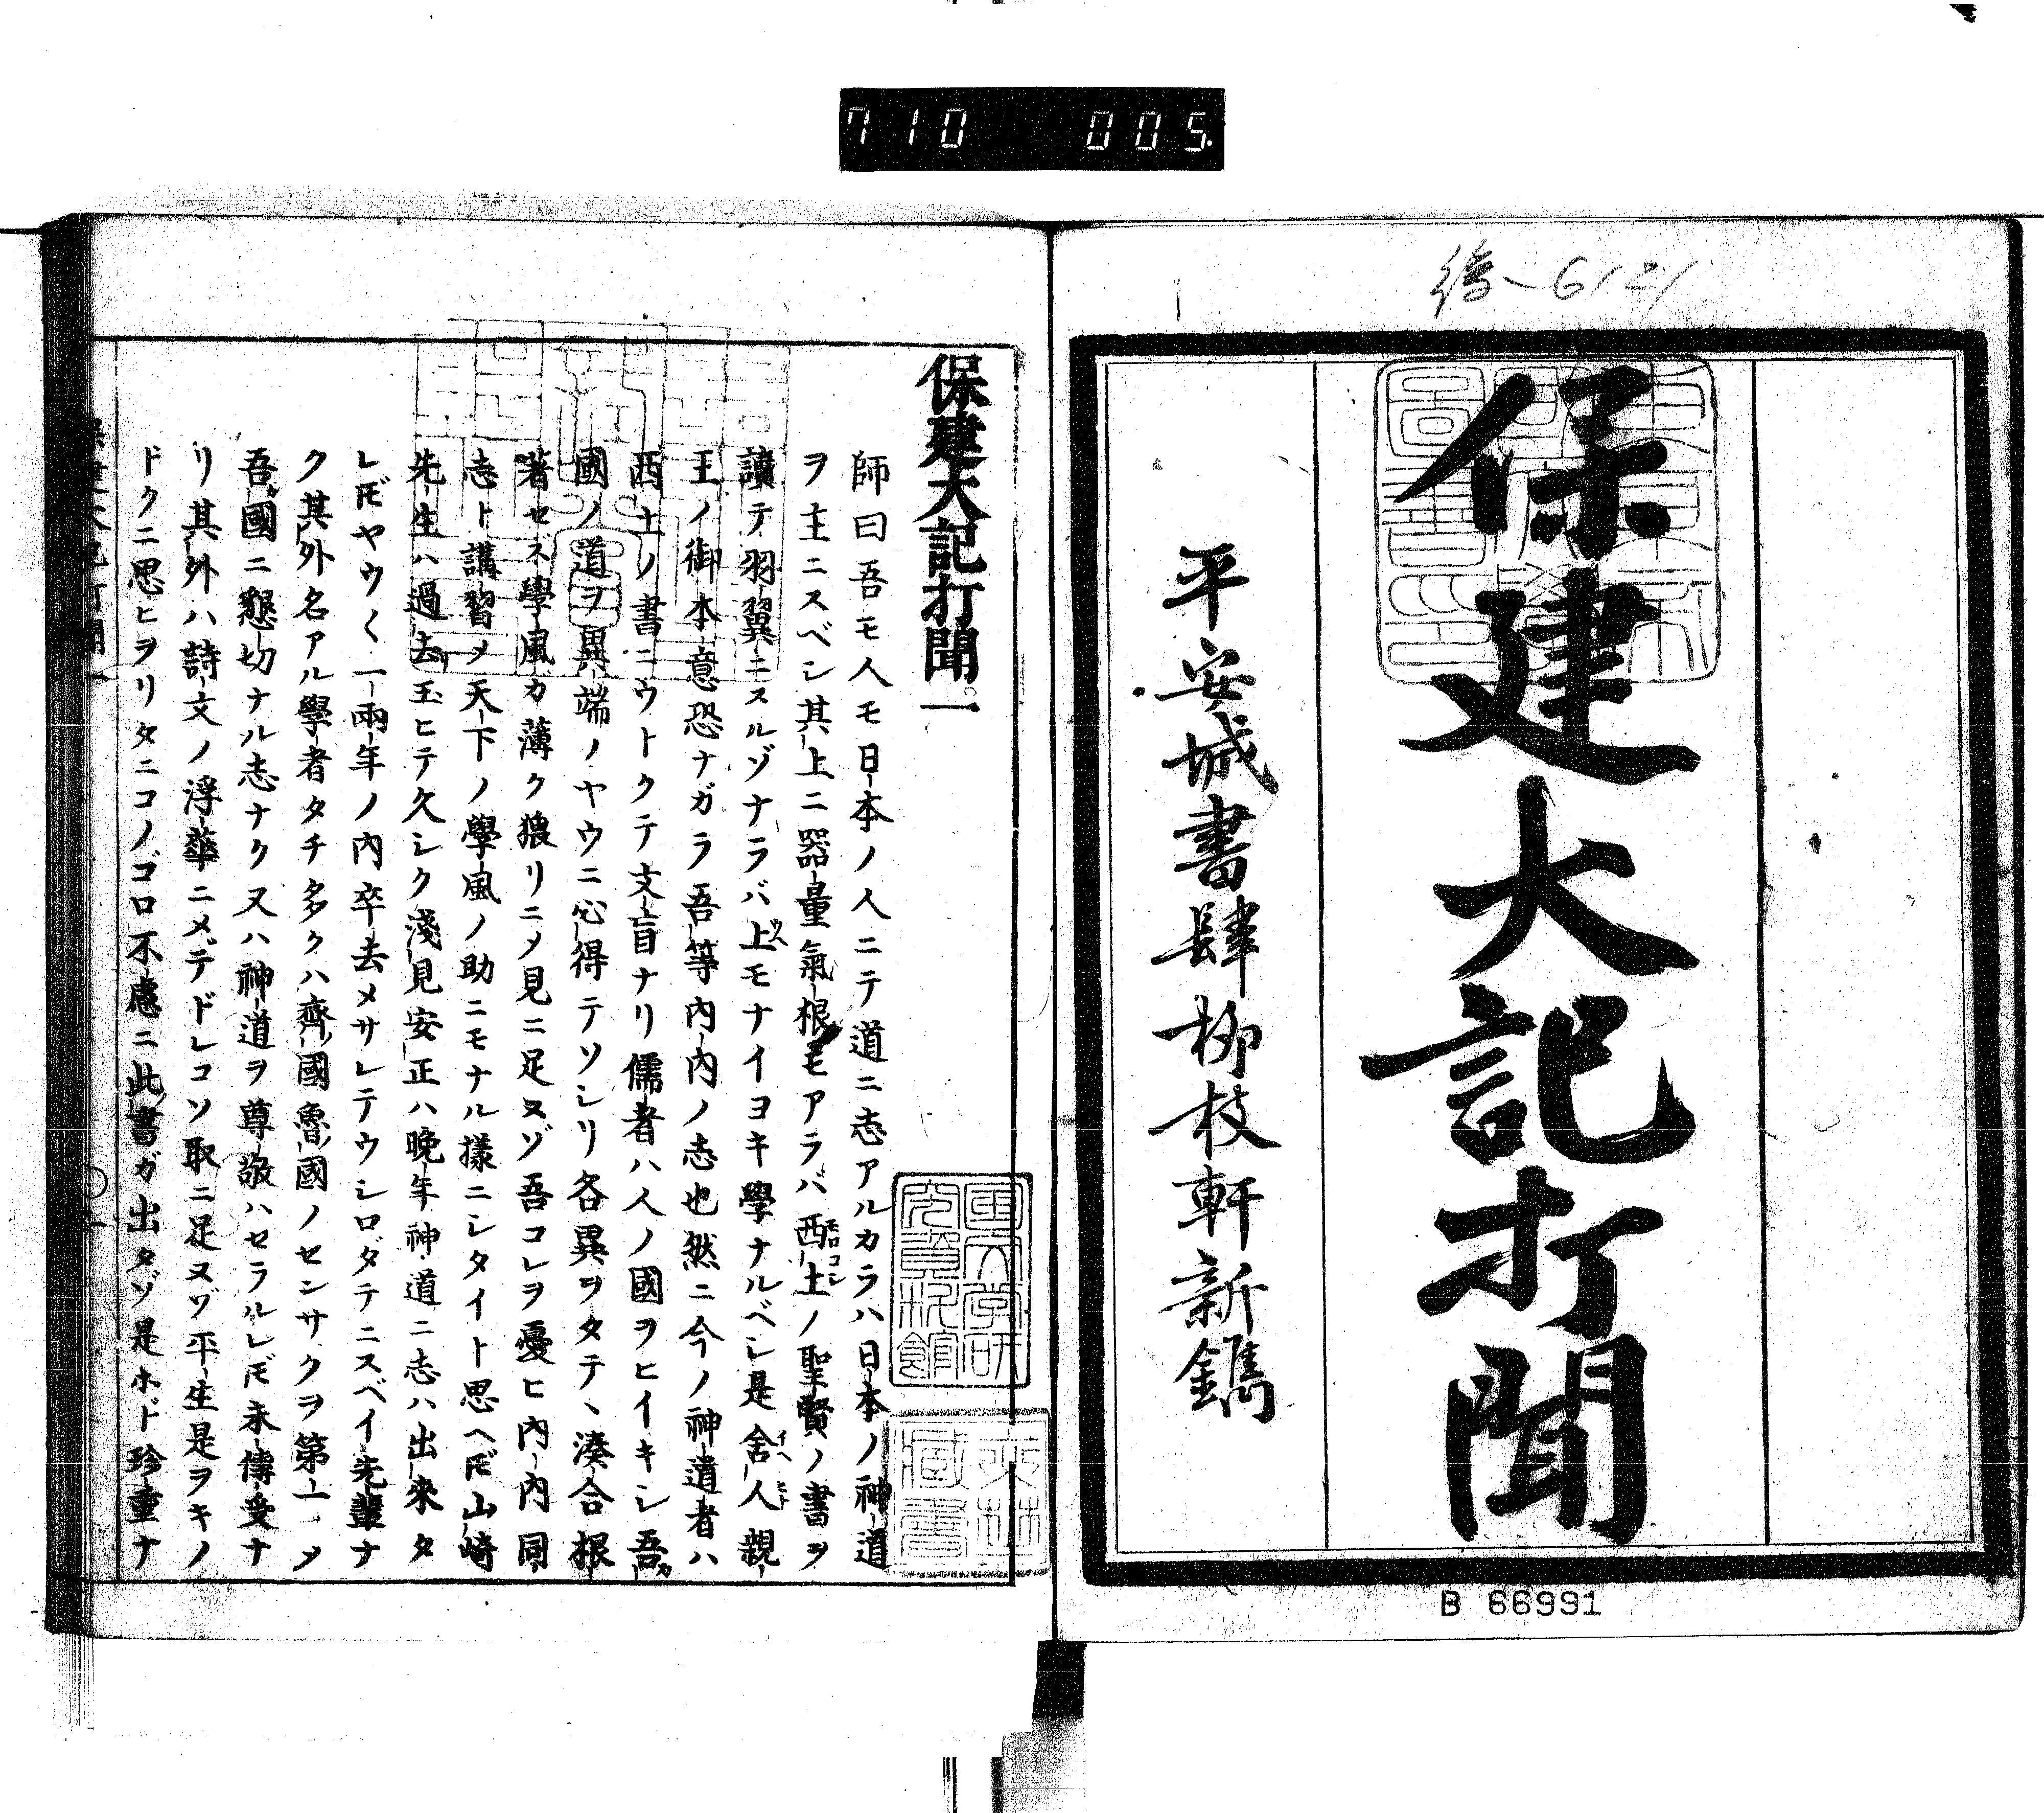 710 005.
保建大記打聞
平安城書肆柳枝軒新鐫
B 66991
保建大記打聞一
師曰吾モ人モ日本ノ人ニテ道ニ志アルカラハ日本ノ神道
ヲ主ニスベシ其上ニ器量氣根モアラバ西土ノ聖賢ノ書ヲ
讀テ羽翼ニスルゾナラバ上モナイヨキ學ナルベシ是舍人親
王ノ御本意恐ナガラ吾等内内ノ志也然ニ今ノ神道者ハ
西土ノ書ニウトクテ文盲ナリ儒者ハ人ノ國ヲヒイキシ吾
國ノ道ヲ異端ノヤウニ心得テソシリ各異ヲタテヽ湊合根
著セズ學風カ薄ク猥リニメ見ニ足ヌゾ吾コレヲ憂ヒ内内同
志ト講習メ天下ノ學風ノ助ニモナル樣ニシタイト思ヘ𪜈山﨑
先生ハ過去玉ヒテ久シク淺見安正ハ晩年神道ニ志ハ出來タ
レ𪜈ヤウ〱一兩年ノ内卒去メサレテウシロダテニスベイ先輩ナ
ク其外名アル學者タチ多クハ齊國魯國ノセンサクヲ第一ノ
吾國ニ懇切ナル志ナク又ハ神道ヲ尊敬ハセラルレ𪜈未傳受ナ
リ其外ハ詩文ノ浮華ニメデドレコソ取ニ足ヌゾ平生是ヲキノ
ドクニ思ヒヲリタニコノゴロ不慮ニ此書ガ出タゾ是ホド珍重ナ